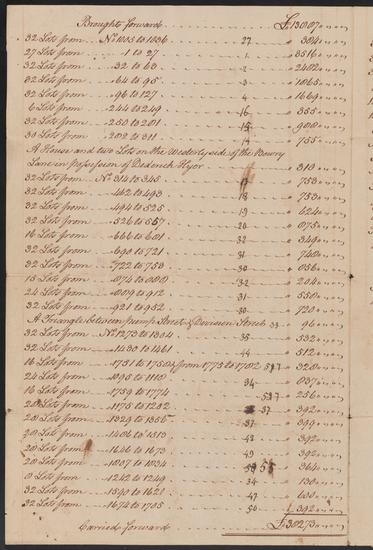 Brought forward . . . £13007 " " "
32 Lots from . . . No. 1005 to 1036 . . . 27 . . . " 304 " " "
27 Lots from . . . 1 to 27 . . . 1 . . . " 3516 " " "
32 Lots from . . . 32 to 63 . . . 2 . . . " 2402 " " "
32 Lots from . . . 64 to 95 . . . 3 . . . " 1065 " " "
32 Lots from . . . 96 to 127 . . . 4 . . . " 1669 " " "
6 Lots from . . . 244 to 249 . . . 16 . . . " 355 " " "
32 Lots from . . . 250 to 281 . . . 15 . . . " 900 " " "
30 Lots from . . . 282 to 311 . . . 14 . . . " 755 " " "
A House and two Lots on the Westerly side of the Bowry
Lane in possession of Dederick Hyor . . . " 310 " " "
32 Lots from . . . No. 314 to 345 . . . 17 . . . " 753 " " "
32 Lots from . . . 462 to 493 . . . 18 . . . " 753 " " "
32 Lots from . . . 494 to 525 . . . 19 . . . " 624 " " "
32 Lots from . . . 526 to 557 . . . 20 . . . " 075 " " "
16 Lots from . . . 666 to 681 . . . 32 . . . " 349 " " "
32 Lots from . . . 690 to 721 . . . 31 . . . " 740 " " "
32 Lots from . . . 722 to 753 . . . 30 . . . " 056 " " "
15 Lots from . . . 874 to 888 . . . 32 . . . " 204 " " "
24 Lots from . . . 889 to 912 . . . 31 . . . " 550 " " "
32 Lots from . . . 921 to 952 . . . 30 . . . " 720 " " "
A Triangle between pump Street & Division Street 33 " 96 " " "
32 Lots from . . . No. 1273 to 1304 . . . 35 . . . " 532 " " "
32 Lots from . . . 1430 to 1461 . . . 44 . . . " 512 " " "
16 Lots from . . . 1751 to 1758 & from 1775 to 1782 537 " 320 " " "
24 Lots from . . . 1095 to 1118 . . . 34 . . . " 037 " " "
16 Lots from . . . 1759 to 1774 . . . 537 " 256 " " "
28 Lots from . . . 1175 to 1202 . . . 37 . . . " 392 " " "
28 Lots from . . . 1329 to 1356 . . . 37 . . . " 399 " " "
28 Lots from . . . 1486 to 1513 . . . 43 . . . " 392 " " "
28 Lots from . . . 1646 to 1673 . . . 49 . . . " 392 " " "
28 Lots from . . . 1807 to 1834 . . . 55 . . . " 364 " " "
8 Lots from . . . 1242 to 1249 . . . 34 . . . " 130 " " "
32 Lots from . . . 1590 to 1621 . . . 47 . . . " 630 " " "
32 Lots from . . . 1674 to 1705 . . . 50 . . . " 392 " " "
Carried forward . . . £30273 " " "